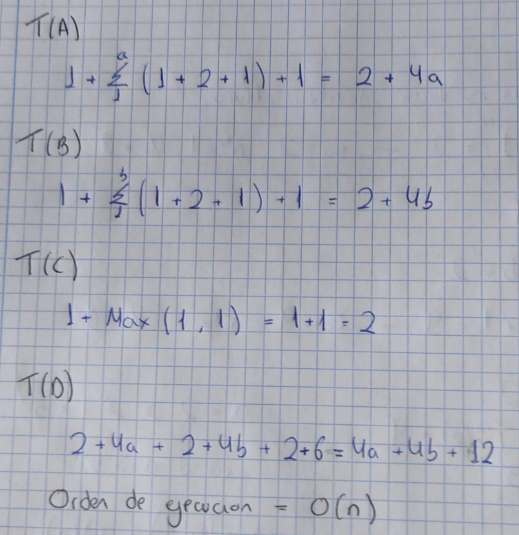 T(A)
1 + a Σ 1 (1 + 2 + 1) + 1 = 2 + 4a
T(B)
1 + b Σ 1 (1 + 2 + 1) + 1 = 2 + 4b
T(C)
1 + Max (1, 1) = 1+1 = 2
T(D)
2 + 4a + 2 + 4b + 2 + 6 = 4a + 4b + 12
Orden de ejecucion = O(n)